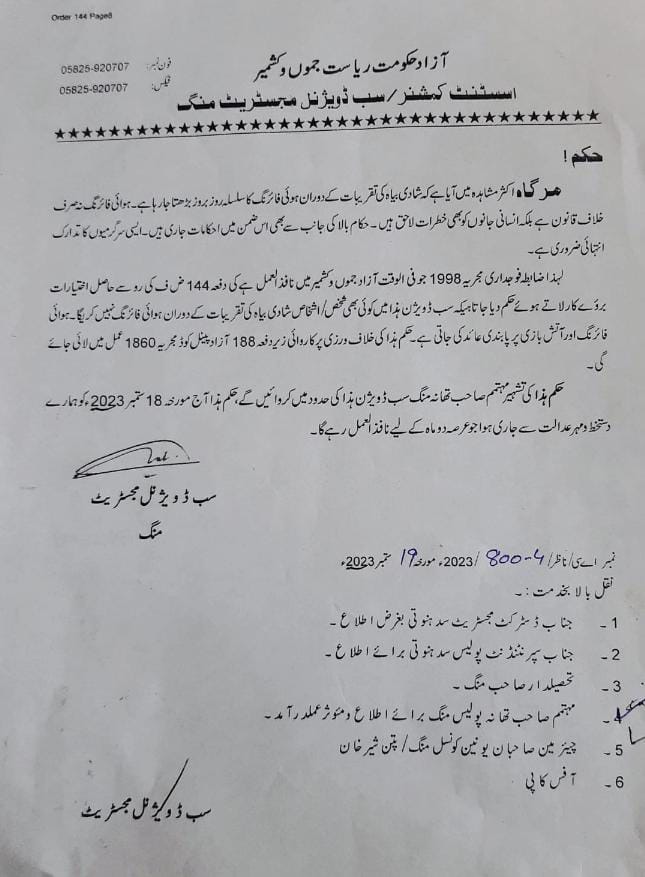 Order 144 Page8
آزاد حکومت ریاست جموں و کشمیر
فون نمبر: 05825-920707
اسسٹنٹ کمشنر/سب ڈویژنل مجسٹریٹ منگ
فیکس: 05825-920707
★★★★★★★★★★★★★★★★★★★★★★★★★★★★★★★★★★★★★★★★
حکم!
ہرگاہ اکثر مشاہدہ میں آیا ہے کہ شادی بیاہ کی تقریبات کے دوران ہوئی فائرنگ کا سلسلہ روز بروز بڑھتا جا رہا ہے۔ ہوائی فائرنگ نہ صرف
خلاف قانون ہے بلکہ انسانی جانوں کو بھی خطرات لاحق ہیں۔ حکام بالا کی جانب سے بھی اس ضمن میں احکامات جاری ہیں۔ ایسی سرگرمیوں کا تدارک
انتہائی ضروری ہے۔
لہذا ضابطہ فوجداری مجریہ 1998 جو فی الوقت آزاد جموں و کشمیر میں نافذ العمل ہے کی دفعہ 144 ض ف کی رو سے حاصل اختیارات
بروئے کار لاتے ہوئے حکم دیا جاتا ہیکہ سب ڈویژن ہذا میں کوئی بھی شخص/اشخاص شادی بیاہ کی تقریبات کے دوران ہوائی فائرنگ نہیں کریگا۔ ہوائی
فائرنگ اور آتش بازی پر پابندی عائد کی جاتی ہے۔ حکم ہذا کی خلاف ورزی پر کاروائی زیر دفعہ 188 آزاد پینل کوڈ مجریہ 1860 عمل میں لائی جائے
گی۔
حکم ہذا کی تشہیر مہتمم صاحب تھانہ منگ سب ڈویژن ہذا کی حدود میں کروائیں گے، حکم ہذا آج مورخہ 18 ستمبر 2023ء کو ہمارے
دستخط و مہر عدالت سے جاری ہوا جو عرصہ دو ماہ کے لیے نافذ العمل رہے گا۔
سب ڈویژنل مجسٹریٹ
منگ
نمبر اے سی/ناظر/800-4/2023ء مورخہ 19 ستمبر 2023ء
نقل بالا بخدمت:۔
1۔ جناب ڈسٹرکٹ مجسٹریٹ سدھنوتی بغرض اطلاع۔
2۔ جناب سپرنٹنڈنٹ پولیس سدھنوتی برائے اطلاع۔
3۔ تحصیلدار صاحب منگ۔
4۔ مہتمم صاحب تھانہ پولیس منگ برائے اطلاع و مئوثر عملدرآمد۔
5۔ چیئرمین صاحبان یونین کونسل منگ/پتن شیر خان
6۔ آفس کاپی
سب ڈویژنل مجسٹریٹ